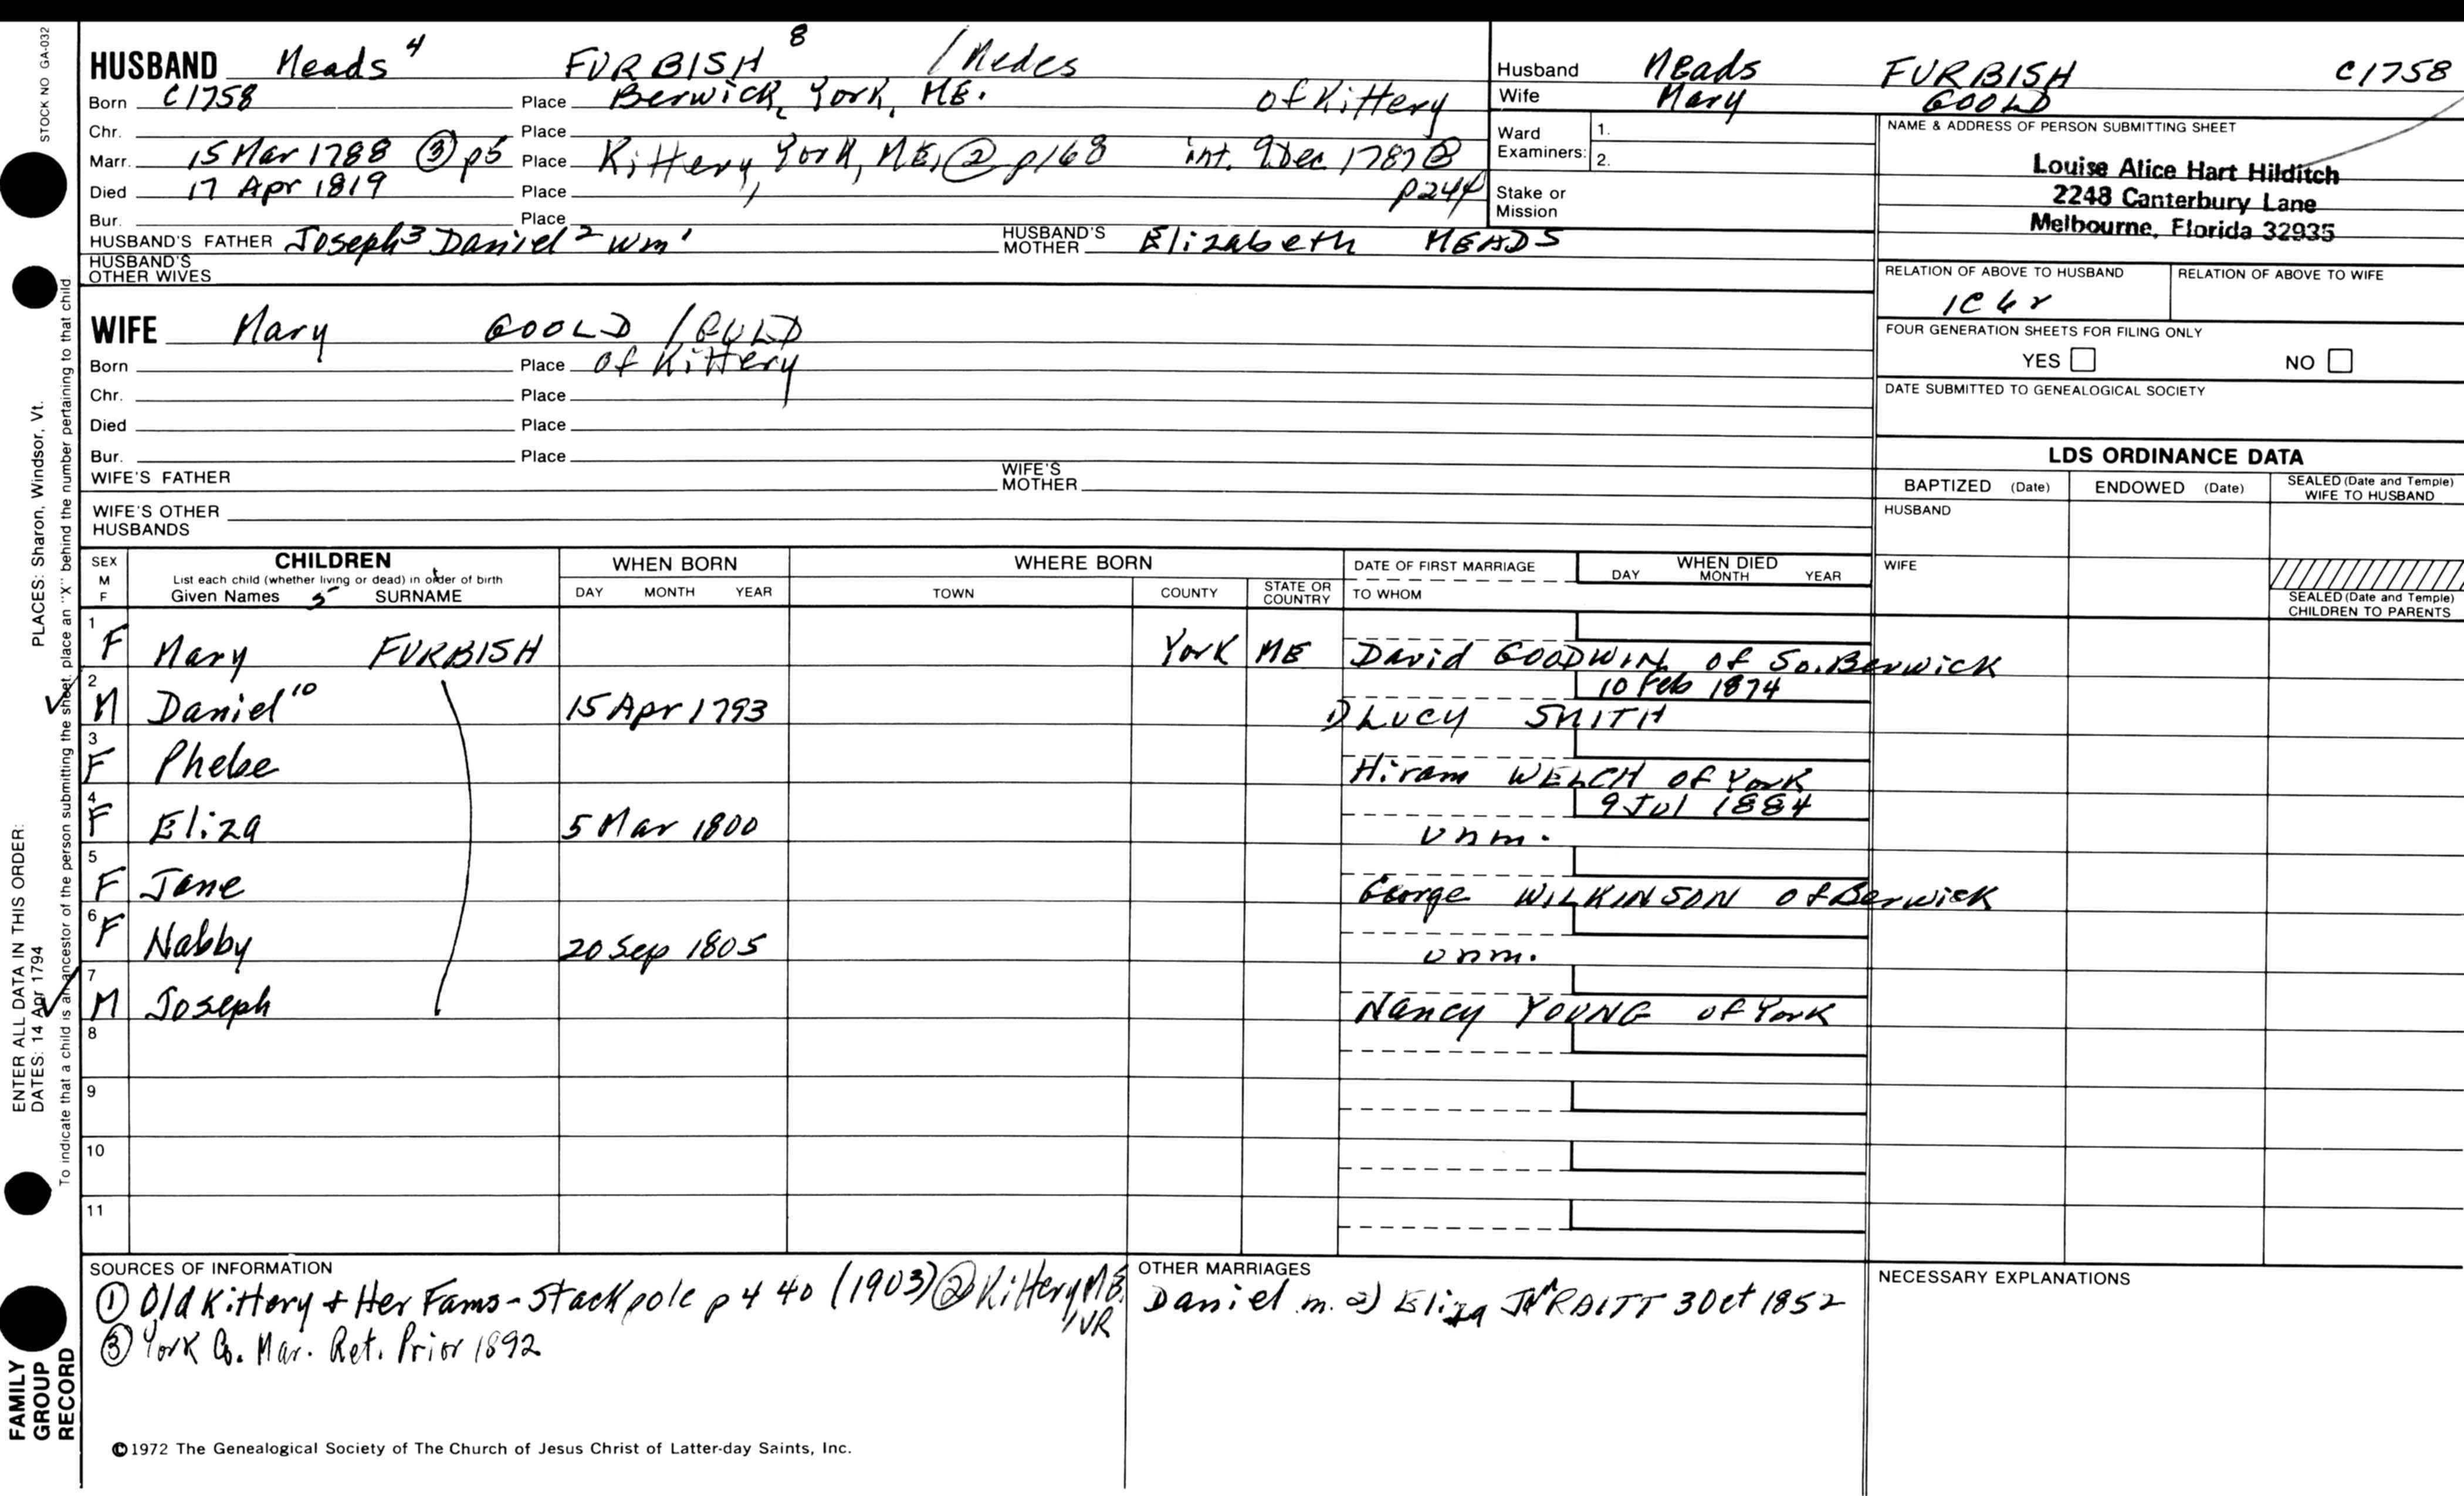 STOCK NO GA-032
HUSBAND Meads 4 FURBISH 8 / Medes
Born c1758 Place Berwick, York, ME. of Kittery
Chr. Place
Marr. 15 Mar 1788 ③ p5 Place Kittery, York, ME, ② p168 int. 9 Dec 1787 ② p244
Died 17 Apr 1819 Place
Bur. Place
HUSBAND'S FATHER Joseph 3 Daniel 2 Wm 1 HUSBAND'S MOTHER Elizabeth MEADS
HUSBAND'S OTHER WIVES
WIFE Mary GOOLD / GULD
Born Place of Kittery
Chr. Place
Died Place
Bur. Place
WIFE'S FATHER WIFE'S MOTHER
WIFE'S OTHER HUSBANDS
Husband Meads FURBISH c1758
Wife Mary GOOLD
Ward Examiners: 1.
2.
Stake or Mission
NAME & ADDRESS OF PERSON SUBMITTING SHEET
Louise Alice Hart Hilditch
2248 Canterbury Lane
Melbourne, Florida 32935
RELATION OF ABOVE TO HUSBAND RELATION OF ABOVE TO WIFE
1C 6r
FOUR GENERATION SHEETS FOR FILING ONLY
YES NO
DATE SUBMITTED TO GENEALOGICAL SOCIETY
LDS ORDINANCE DATA
BAPTIZED (Date) ENDOWED (Date) SEALED (Date and Temple) WIFE TO HUSBAND
HUSBAND
WIFE
SEALED (Date and Temple) CHILDREN TO PARENTS
SEX M F CHILDREN WHEN BORN WHERE BORN DATE OF FIRST MARRIAGE WHEN DIED
List each child (whether living or dead) in order of birth
Given Names 5 SURNAME DAY MONTH YEAR TOWN COUNTY STATE OR COUNTRY TO WHOM DAY MONTH YEAR
1 F Mary FURBISH York ME David GOODWIN of So. Berwick
2 M Daniel 10 15 Apr 1793 10 Feb 1874
1) Lucy SMITH
3 F Phebe Hiram WELCH of York
4 F Eliza 5 Mar 1800 9 Jul 1884
unm.
5 F Jane George WILKINSON of Berwick
6 F Nabby 20 Sep 1805 unm.
7 M Joseph Nancy YOUNG of York
8
9
10
11
SOURCES OF INFORMATION
① Old Kittery + Her Fams - Stackpole p 440 (1903) ② Kittery, ME VR
③ York Co. Mar. Ret. Prior 1892
OTHER MARRIAGES
Daniel m. 2) Eliza J. McRAITT 3 Oct 1852
NECESSARY EXPLANATIONS
©1972 The Genealogical Society of The Church of Jesus Christ of Latter-day Saints, Inc.
FAMILY GROUP RECORD
ENTER ALL DATA IN THIS ORDER:
DATES: 14 Apr 1794
PLACES: Sharon, Windsor, Vt.
To indicate that a child is an ancestor of the person submitting the sheet, place an "X" behind the number pertaining to that child